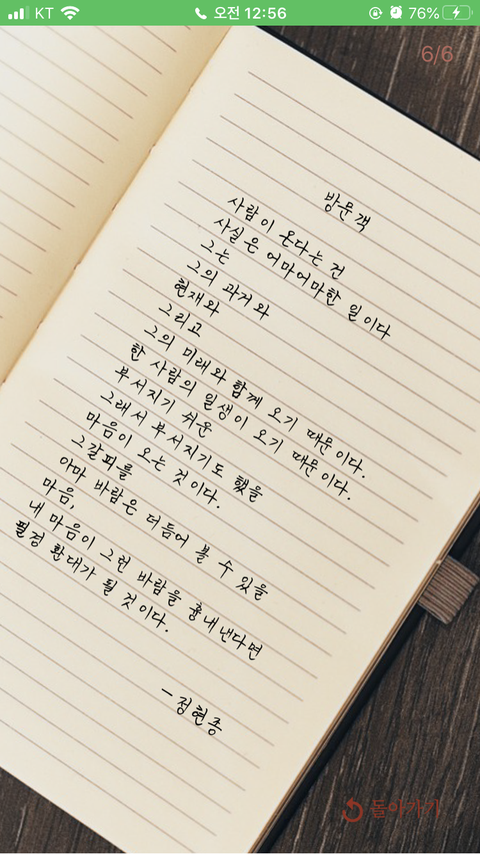 KT 오전 12:56 76%
6/6
방문객
사람이 온다는 건
사실은 어마어마한 일이다
그는
그의 과거와
현재와
그리고
그의 미래와 함께 오기 때문이다.
한 사람의 일생이 오기 때문이다.
부서지기 쉬운
그래서 부서지기도 했을
마음이 오는 것이다.
그갈피를
아마 바람은 더듬어 볼 수 있을
마음,
내 마음이 그런 바람을 흉내낸다면
필경 환대가 될 것이다.
- 정현종
돌아가기